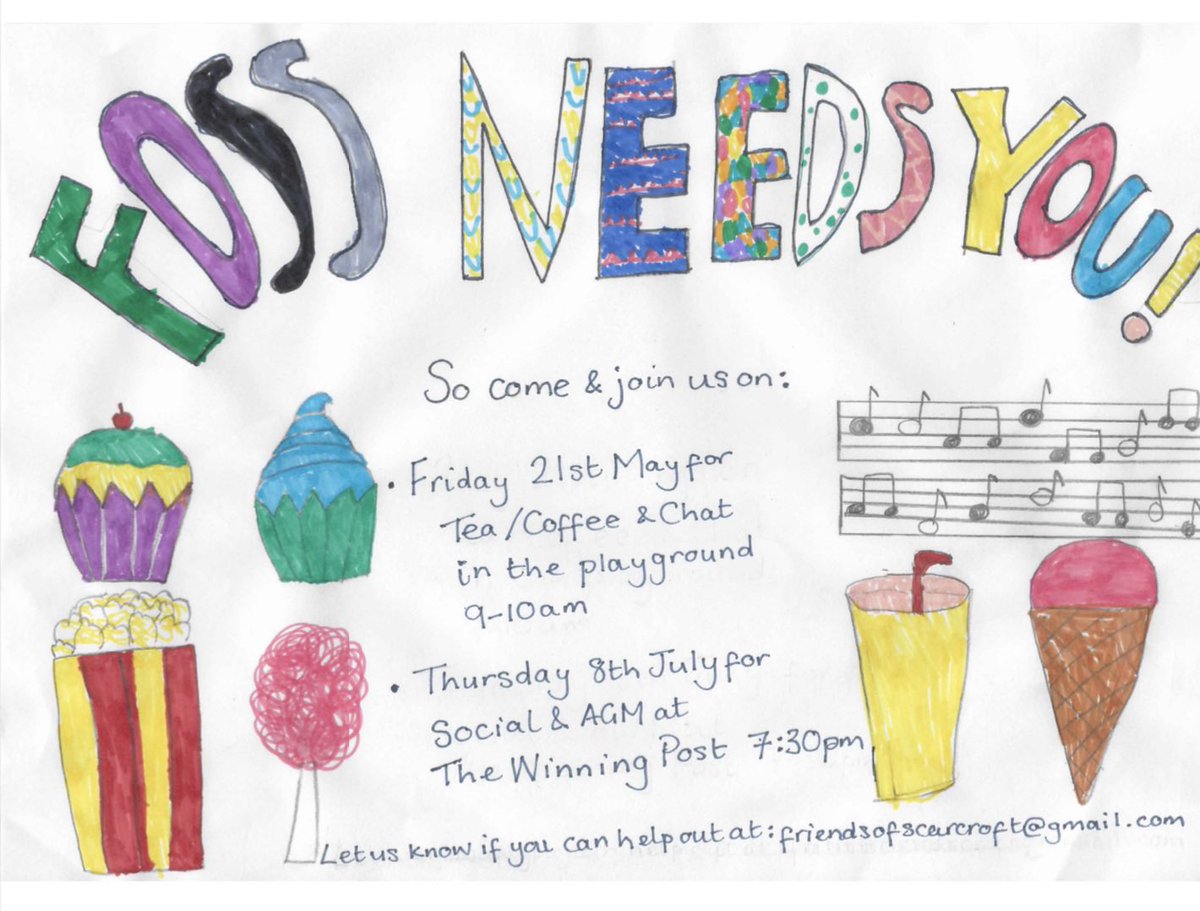 FOSS NEEDS YOU!
So come & join us on:
• Friday 21st May for
Tea/Coffee & Chat
in the playground
9-10am
• Thursday 8th July for
Social & AGM at
The Winning Post 7:30pm
Let us know if you can help out at: friendsofscarcroft@gmail.com